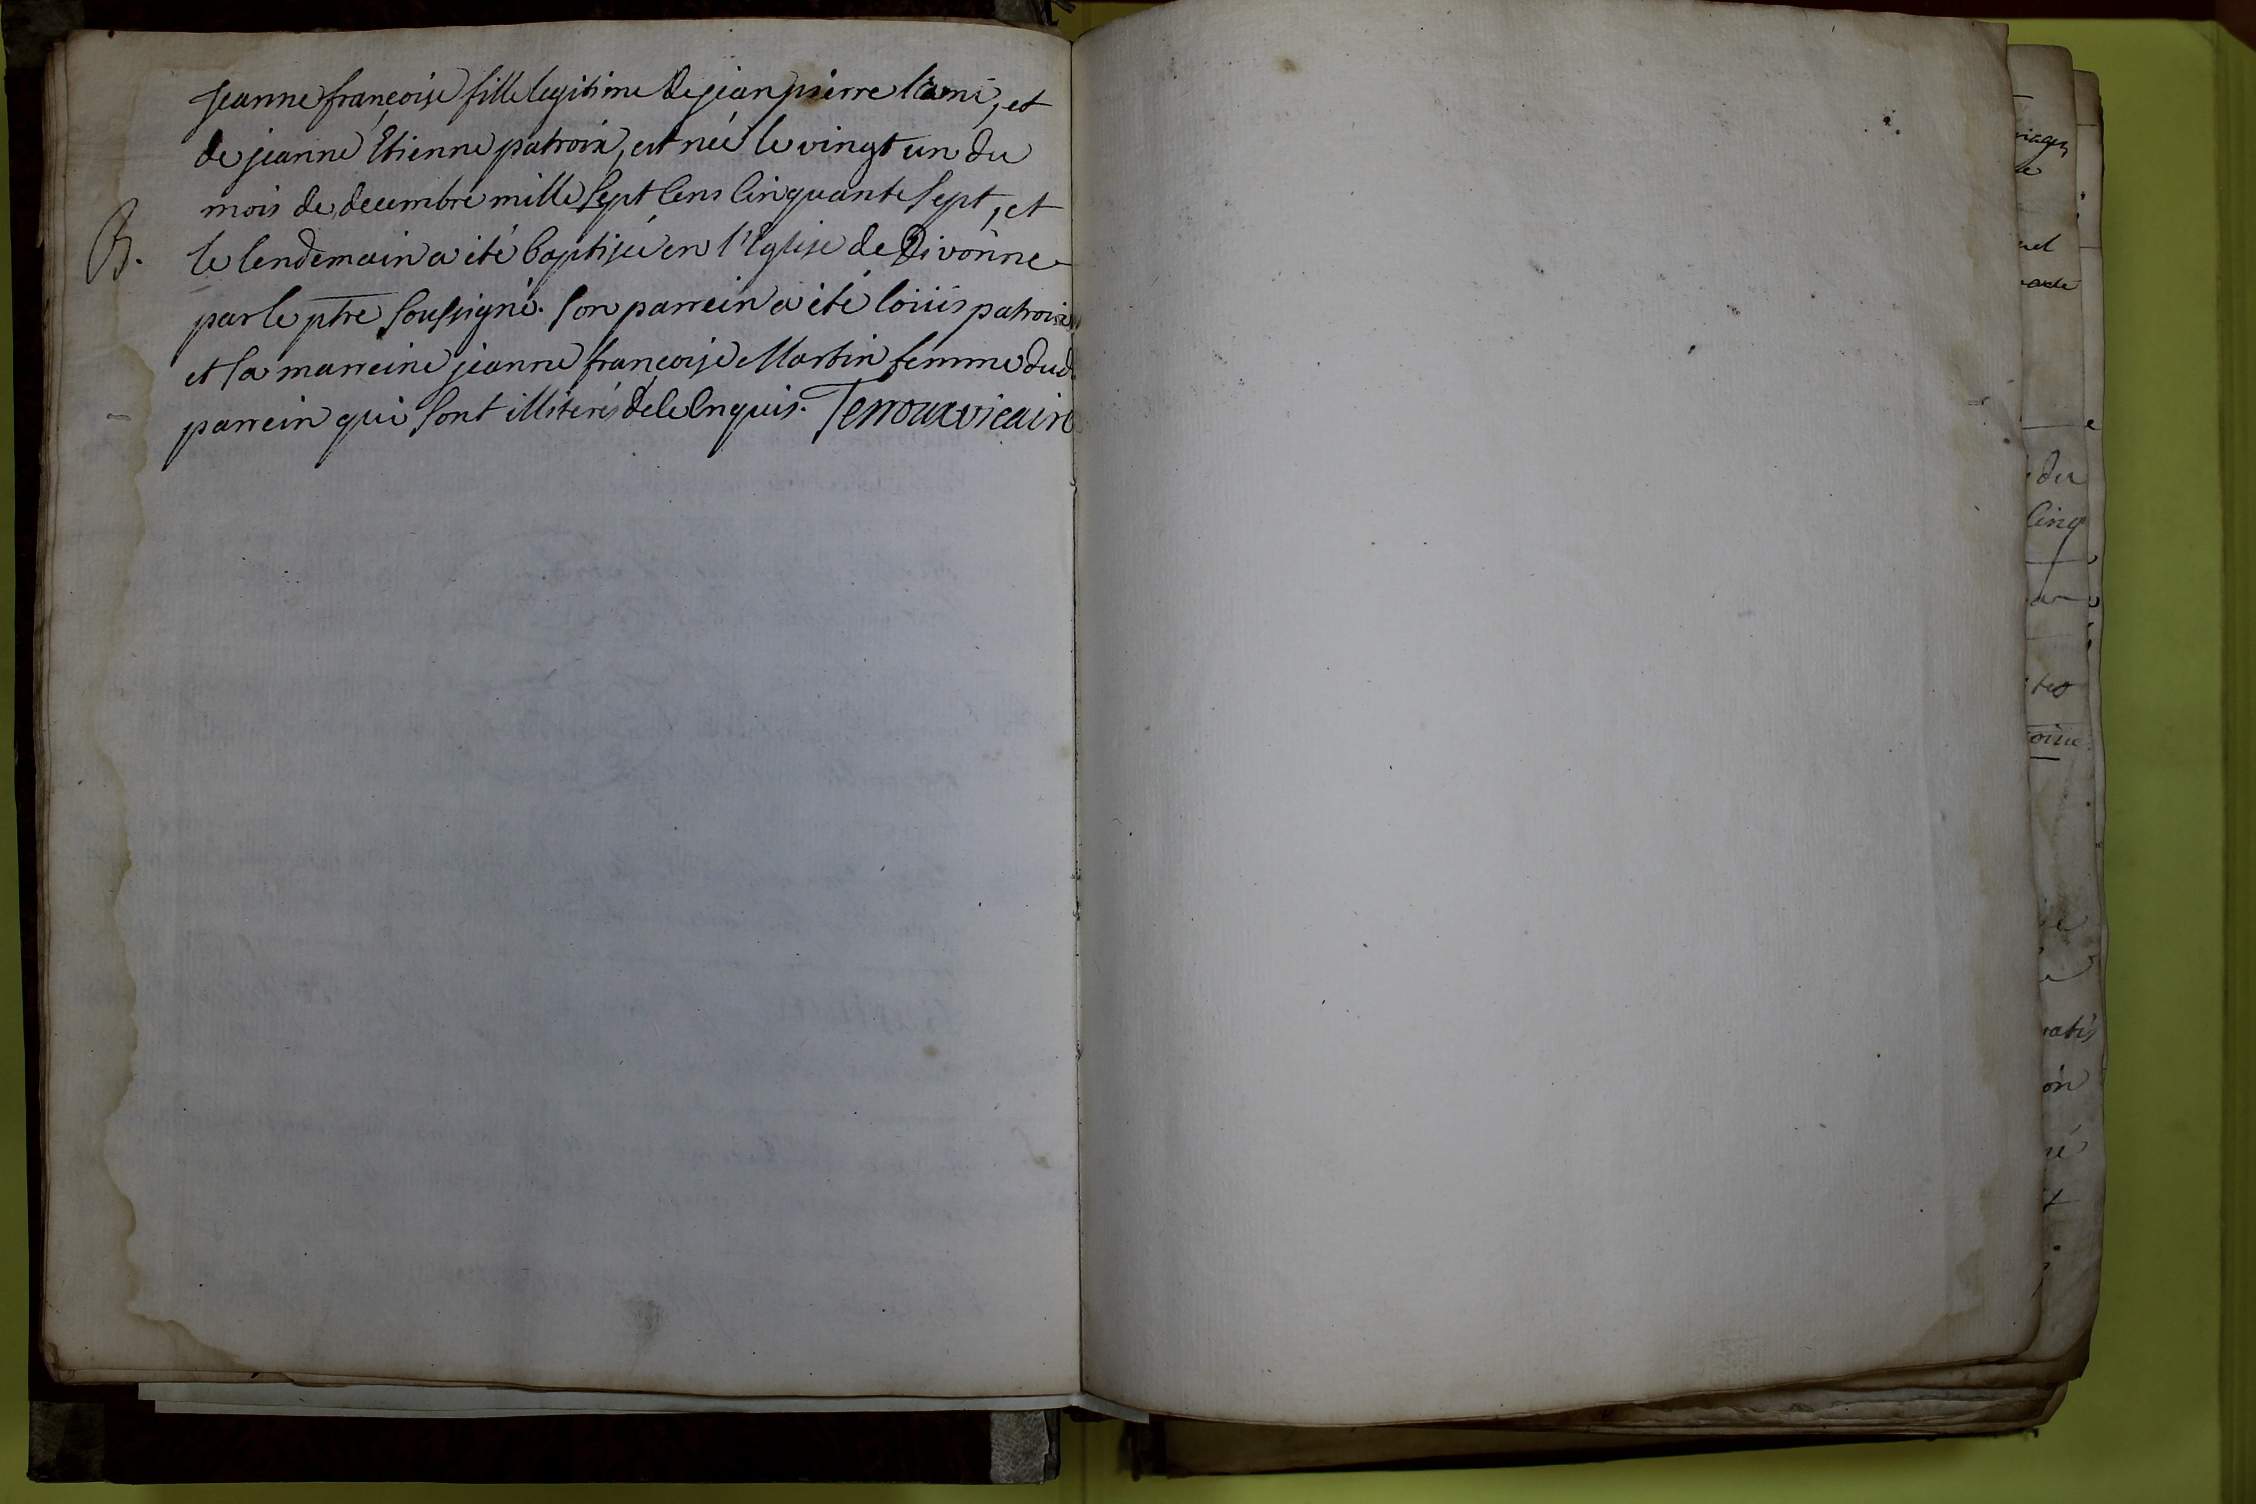 jeanne françoise fille legitime de jean pierre l'ami, et
de jeanne Etienne patroix, est née le vingt un du
mois de decembre mille sept cens cinquante sept, et
B. le lendemain a été baptisée en l'Eglise de Divonne
par le ptre soussigné. son parrein a été loüis patroix
et sa marreine jeanne françoise Martin femme dud.
parrein qui sont illiterés de ce enquis. Terroux vicaire
du
cinq